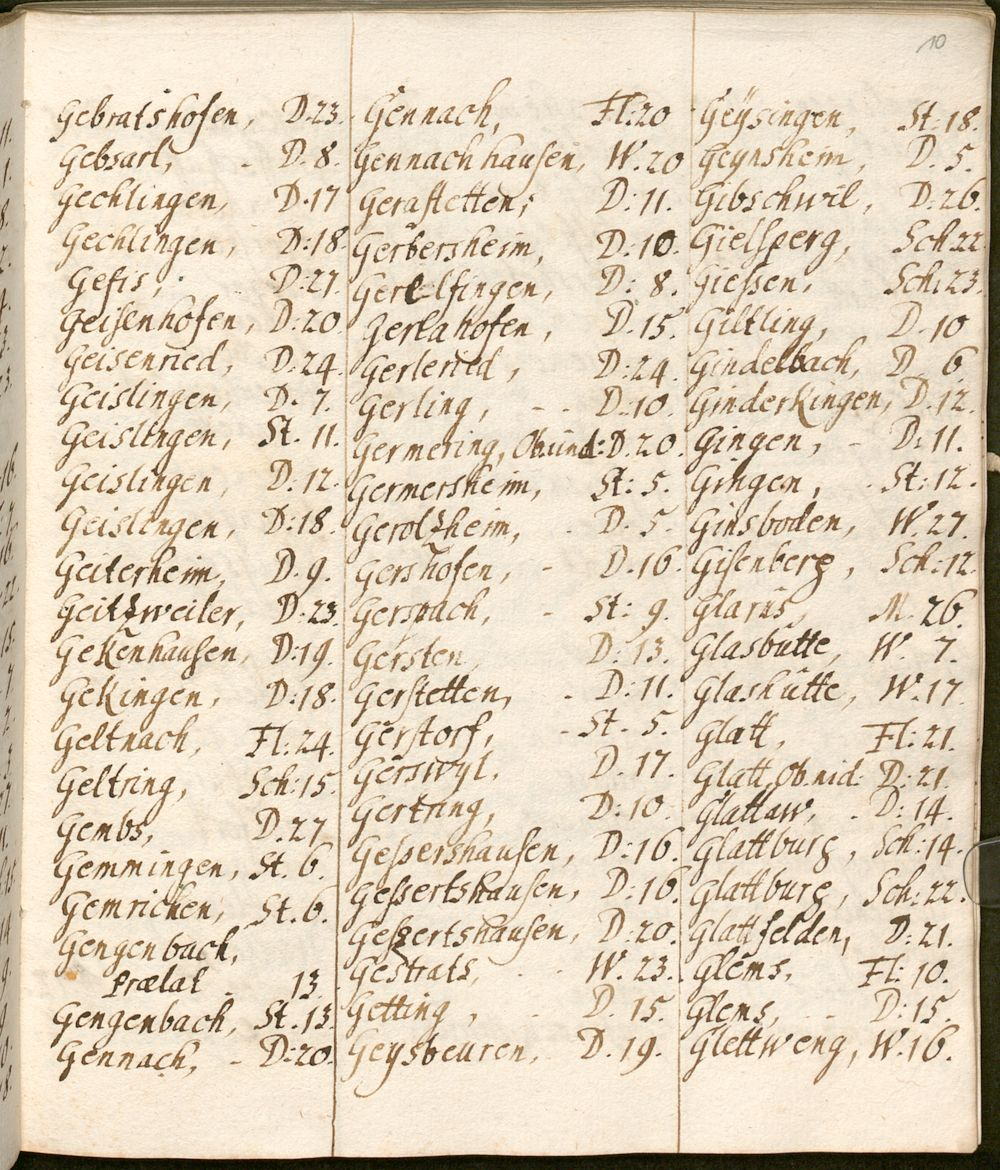 10
Gebratshofen, D.23.
Gebsarl, - D. 8.
Gechlingen, D.17
Gechlingen, D:18
Gefis, D.27.
Geisenhofen, D:20
Geisenried, D.24.
Geislingen, D. 7.
Geislingen, St. 11.
Geislingen, D:12
Geislingen, D:18.
Geiterheim, D.9.
Geitzweiler, D.23
Gekenhausen, D:19.
Gekingen, D:18.
Geltnach, Fl:24.
Geltring, Sch:15.
Gembs, D.27
Gemmingen, St. 6.
Gemrichen, St.6.
Gengenbach,
Prælat 13
Gengenbach, St.13
Gennach, - D:20.
Gennach, Fl:20
Gennachhausen, W.20
Gerastetten, D:11.
Gerbersheim, D:10.
Gerelfingen, D: 8.
Gerlahofen, D.15.
Gerleried, D:24.
Gerling, - - D:10.
Germering, Ob.und: D.20.
Germersheim, St: 5.
Geroltzheim, D. 5.
Gershofen, - D.16
Gerspach, - St: 9.
Gersten, D: 13.
Gerstetten, - D:11.
Gerstorf, - St. 5.
Gerswyl, D. 17.
Gertring, D:10
Gessershausen, D:16.
Gessertshausen, D:16.
Geszertshausen, D:20.
Gestrats, W. 23.
Getting, - D. 15.
Geysbeuren, D.19.
Geÿsingen, St.18.
Geynsheim, D. 5.
Gibschwil, D:26.
Gielsperg, Sch:22
Giessen, Sch:23.
Giltling, D 10
Gindelbach, D. 6
Ginderkingen, D.12.
Gingen, - D:11.
Gingen, - St:12.
Ginsboden, W.27.
Gisenberg, Sch:12.
Glarus, M. 26.
Glashutte, W. 7.
Glashütte, W.17
Glatt, Fl:21.
Glatt, Ob.nid: D:21.
Glattaw, - D:14.
Glattburg, Sch:14.
Glattburg, Sch:22.
Glattfelden, D:21.
Glems, Fl:10.
Glems, - - D:15.
Glettweng, W.16.